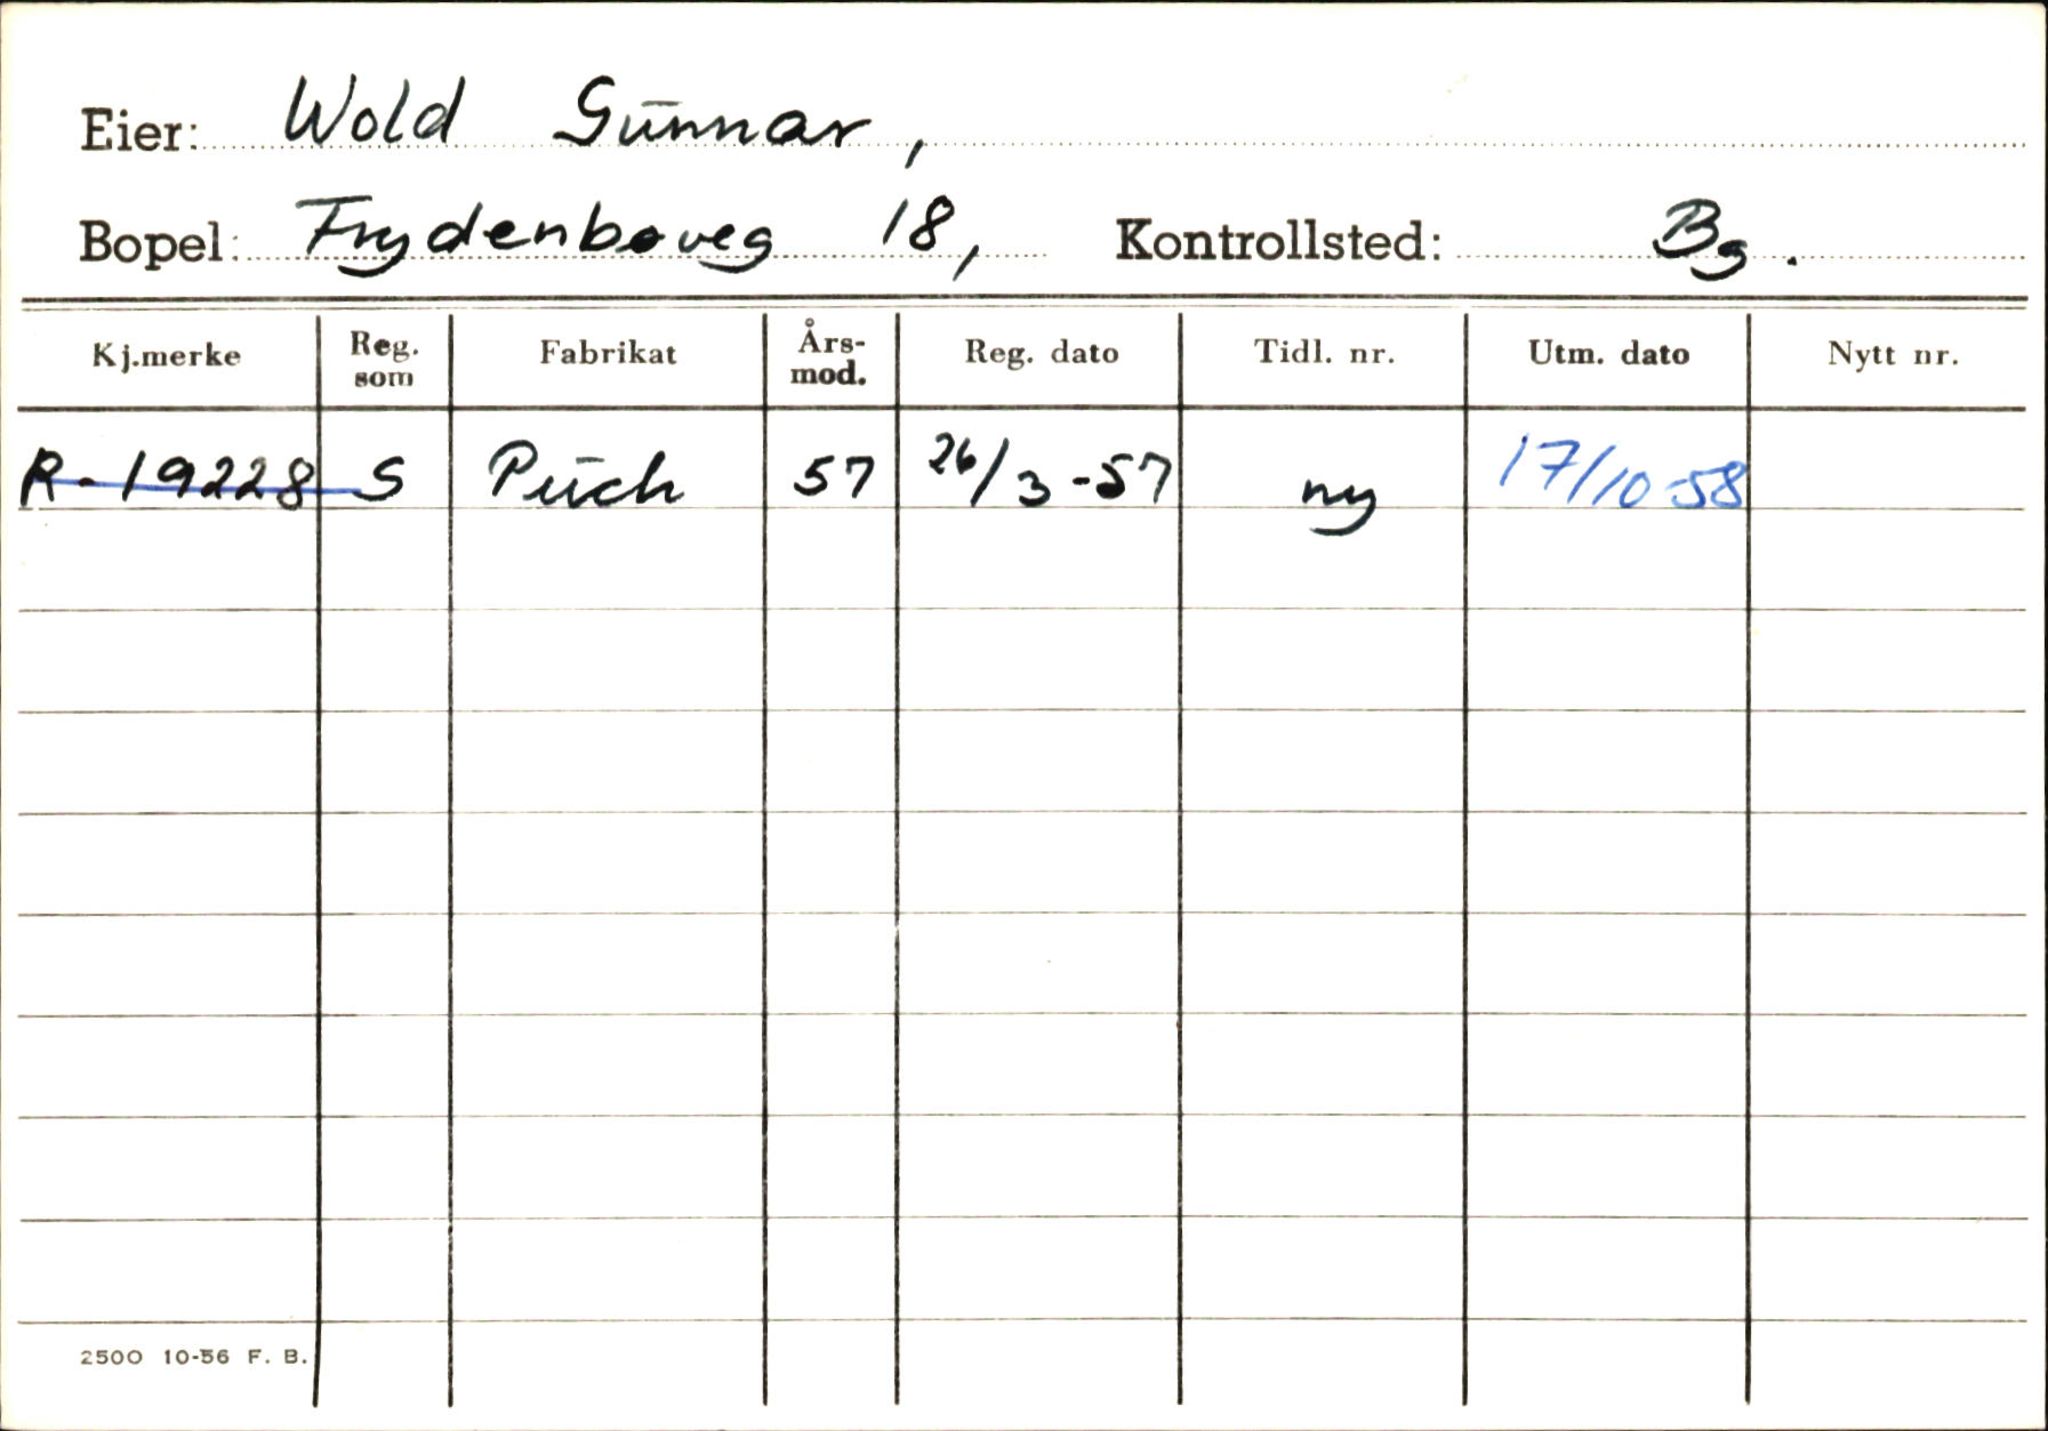 Eier: Wold Gunnar,
Bopel: Frydenbøveg 18, Kontrollsted: Bg.
Kj.merke Reg. som Fabrikat Års-mod. Reg. dato Tidl. nr. Utm. dato Nytt nr.
R-19228 S Puch 57 26/3-57 ny 17/10-58
2500 10-56 F. B.